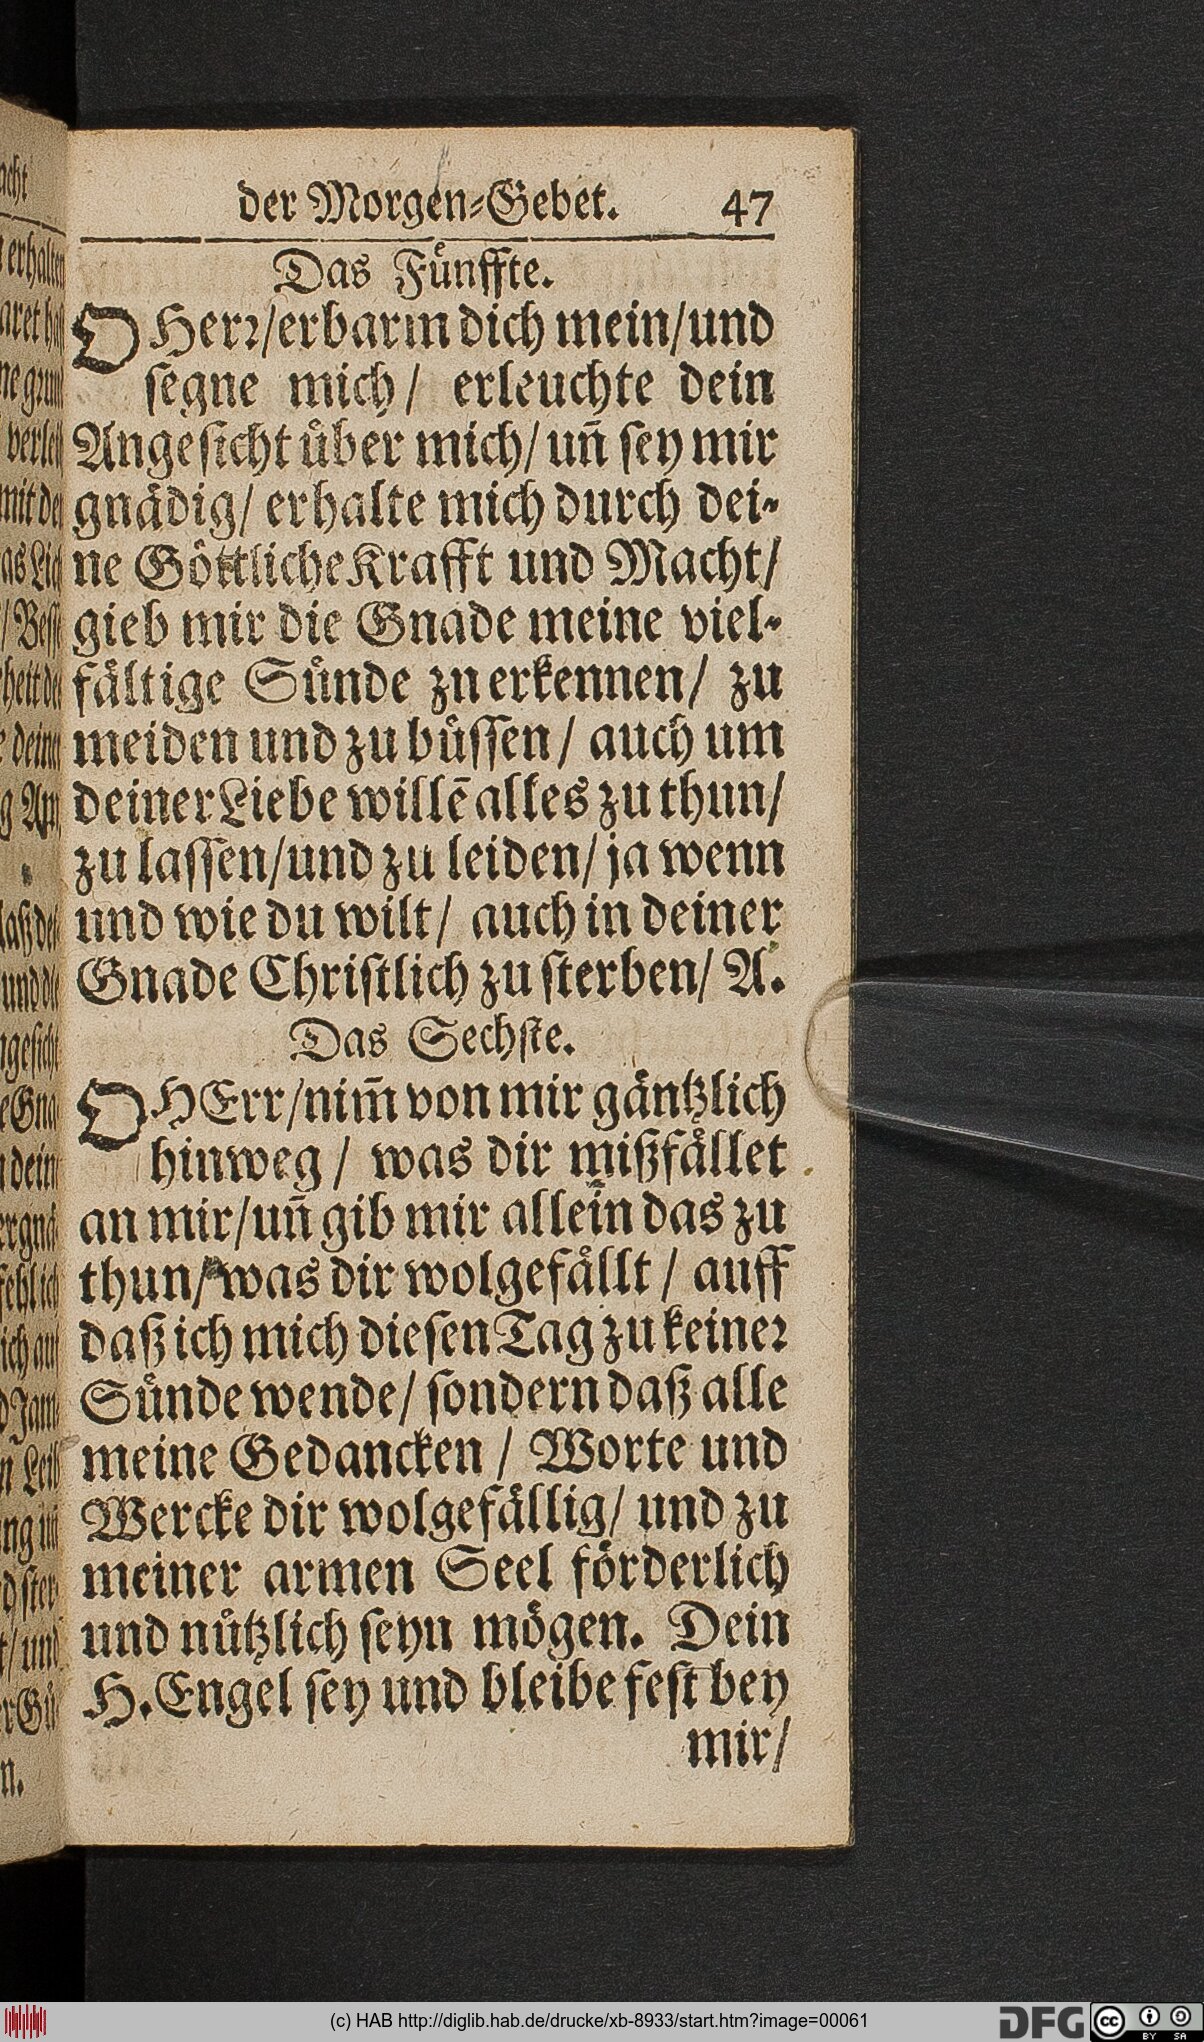 der Morgen-Gebet. 47
Das Fünffte.
O Herr/erbarm dich mein/und
segne mich/ erleuchte dein
Angesicht über mich/ uñ sey mir
gnädig/ erhalte mich durch dei-
ne Göttliche Krafft und Macht/
gieb mir die Gnade meine viel-
fältige Sünde zn erkennen/ zu
meiden und zu büssen/ auch um
deiner Liebe willē alles zu thun/
zu lassen/und zu leiden/ ja wenn
und wie du wilt/ auch in deiner
Gnade Christlich zu sterben/ A.
Das Sechste.
O HErr/nim̃ von mir gäntzlich
hinweg/ was dir mißfället
an mir/uñ gib mir allein das zu
thun/ was dir wolgefällt/ auff
daß ich mich diesen Tag zu keiner
Sünde wende/ sondern daß alle
meine Gedancken/ Worte und
Wercke dir wolgefällig/ und zu
meiner armen Seel förderlich
und nützlich seyn mögen. Dein
H. Engel sey und bleibe fest bey
mir/
(c) HAB http://diglib.hab.de/drucke/xb-8933/start.htm?image=00061
DFG
cc BY SA